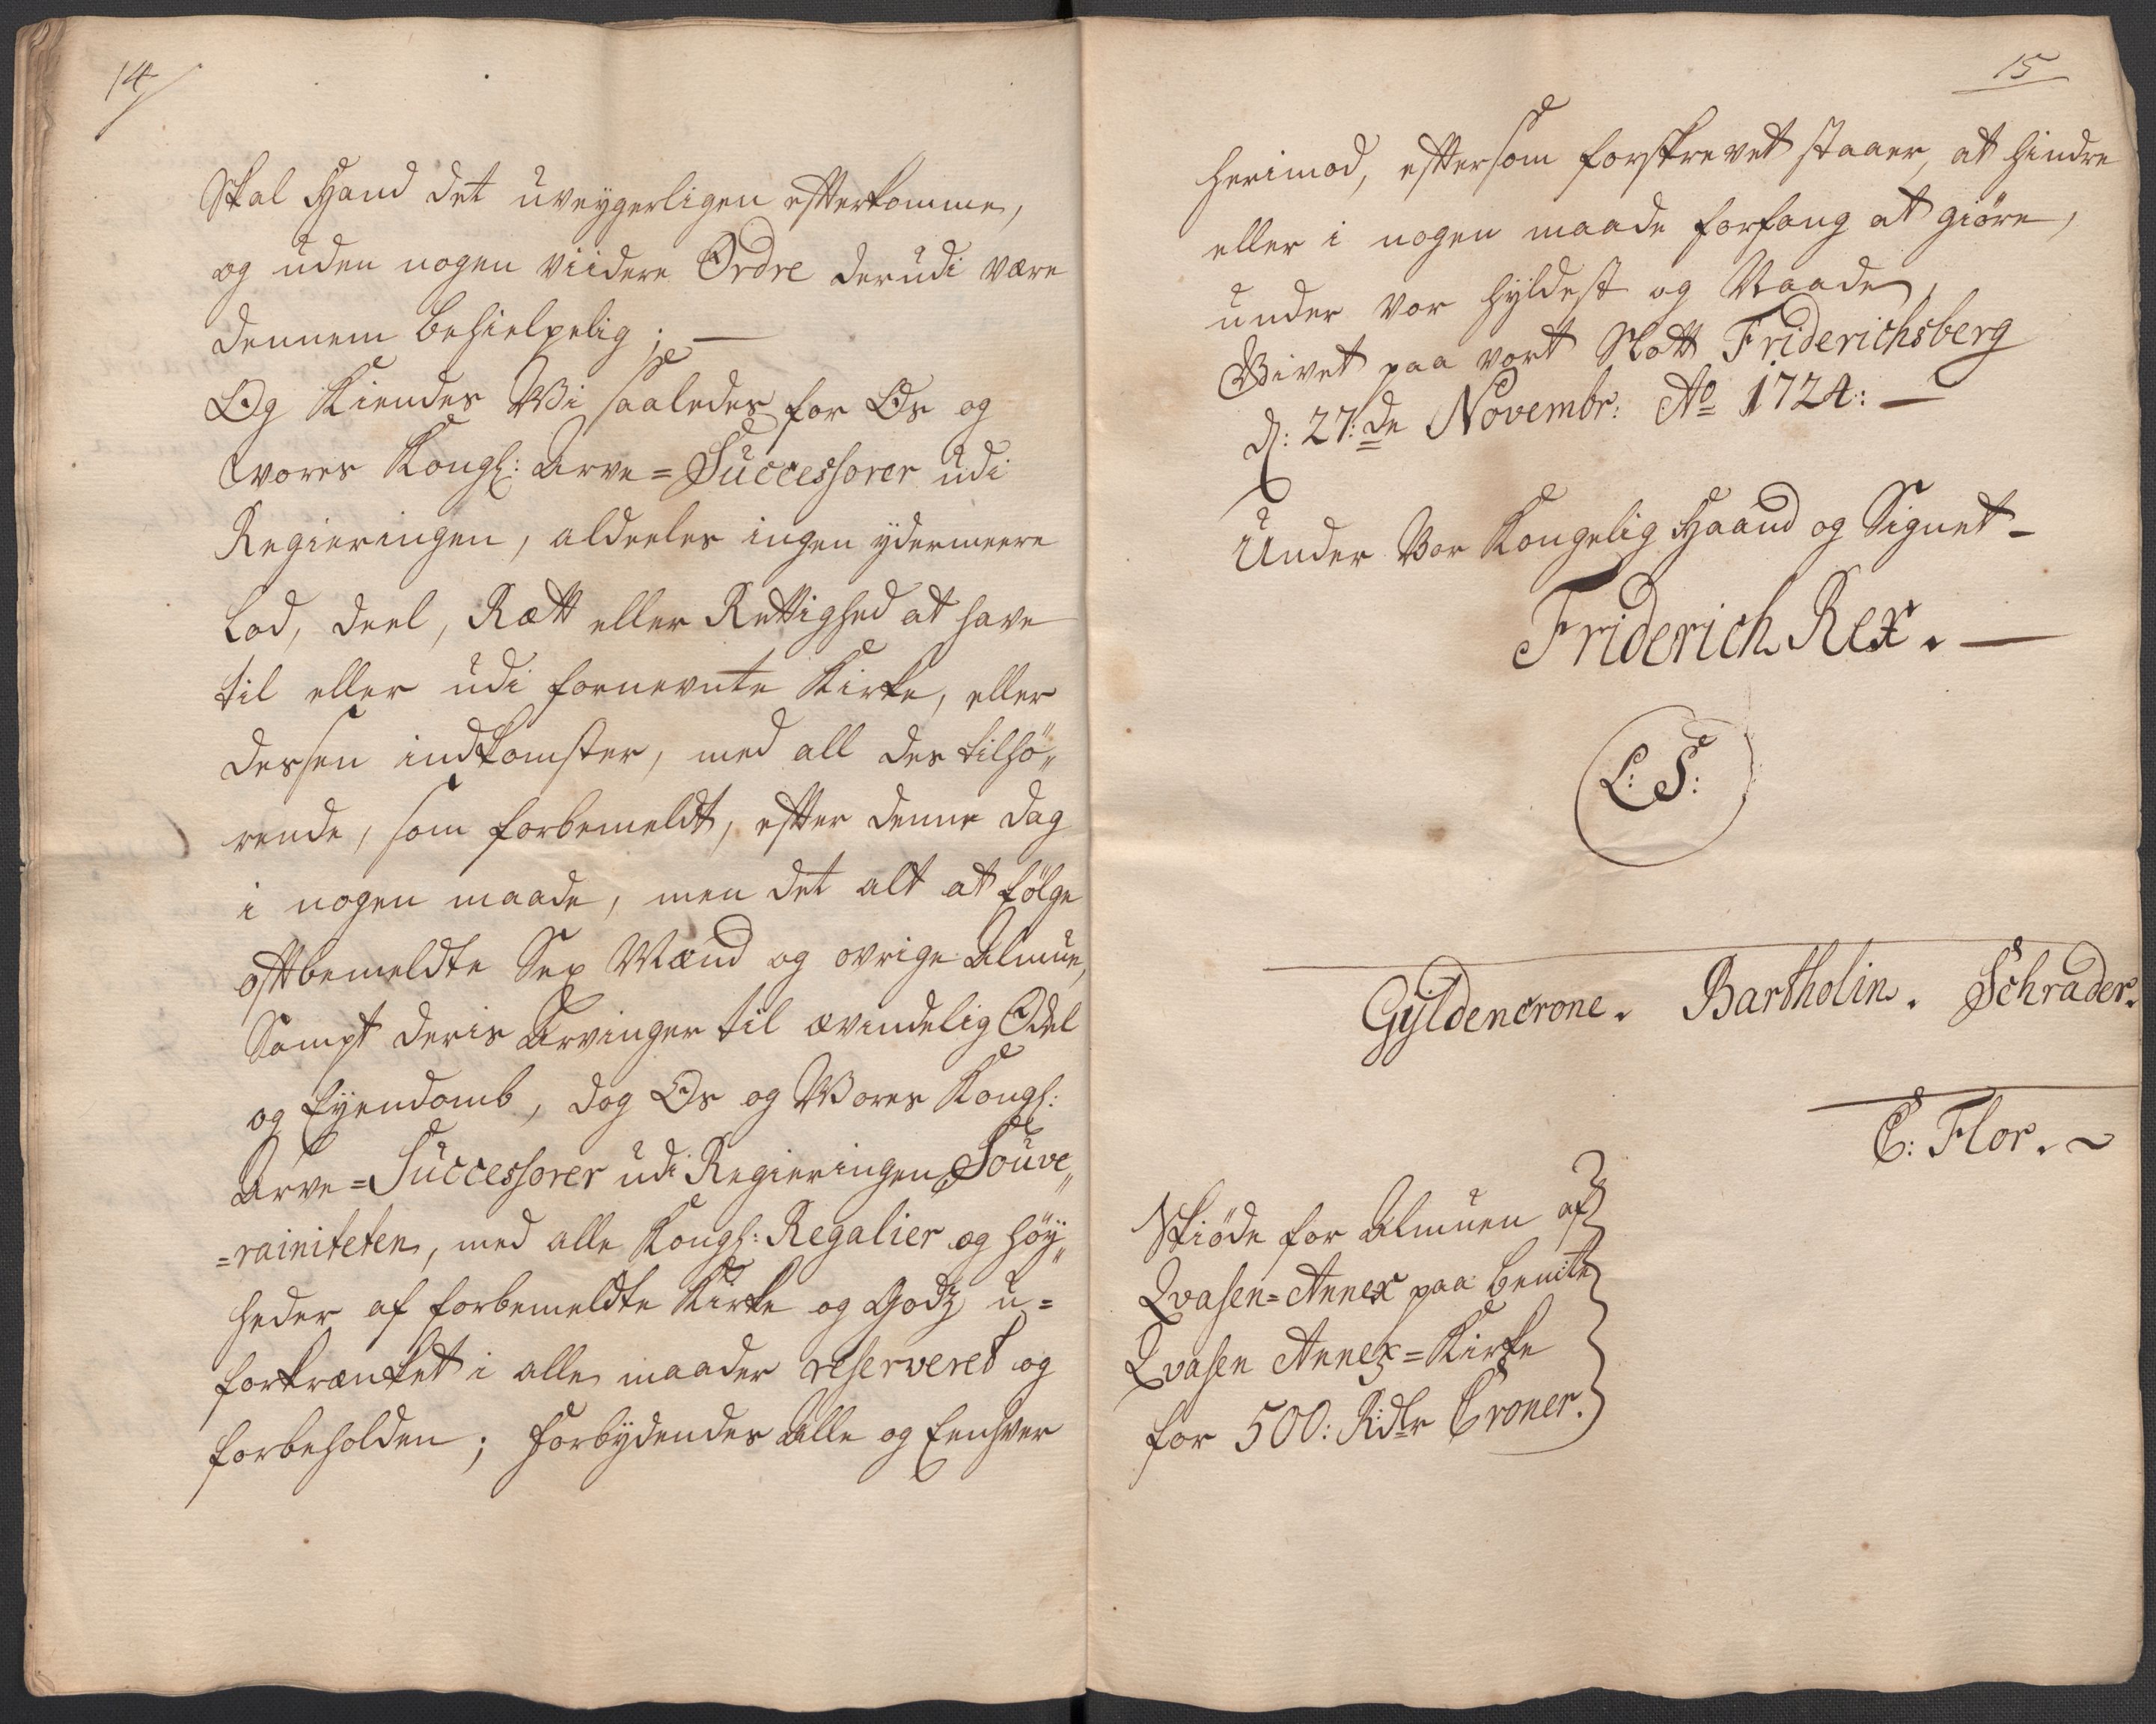 14
Skal Hand det uveygerligen efterkomme,
og uden nogen viidere Ordre derudi være
dennem behielpelig; —
Og Kiendes Wi saaledes for Os og
vores Kongl: Arve=Successorer udi
Regieringen, aldeeles ingen ydermeere
Lod, deel, Rætt eller Rettighed at have
til eller udi fornevnte Kirke, eller
dessen indkomster, med all des tilhö„
rende, som forbemeldt, efter denne dag
i nogen maade, men det alt at følge
oftbemeldte Sex Mænd og ovrige Almue,
Sampt deris Arvinger til ævindelig Odel
og Eyendomb, dog Os og Wores Kongl:
Arve=Successorer udi Regieringen Souve„
=rainiteten, med alle Kongl: Regalier og höy„
heder af forbemeldte Kirke og Godz u=
forkrænket i alle maader reserveret og
forbeholden; forbydendes Alle og Eenhver
15
herimod, eftersom forskrevet staaer, at hindre
eller i nogen maade forfang at giöre,
under vor hyldest og Naade,
Givet paa vort Slott Friderichsberg
d: 27:de Novembr: Ao 1724: —
Under Vor Kongelig Haand og Signet –
Friderich Rex. —
L: S:
Gÿldencrone. Bartholin. Schrader.
C: Flor. ~
Skiöde for Almuen af
Qvasen=Annex paa bemte
Qvasen Annex=Kirke
for 500: Rdlr Croner.